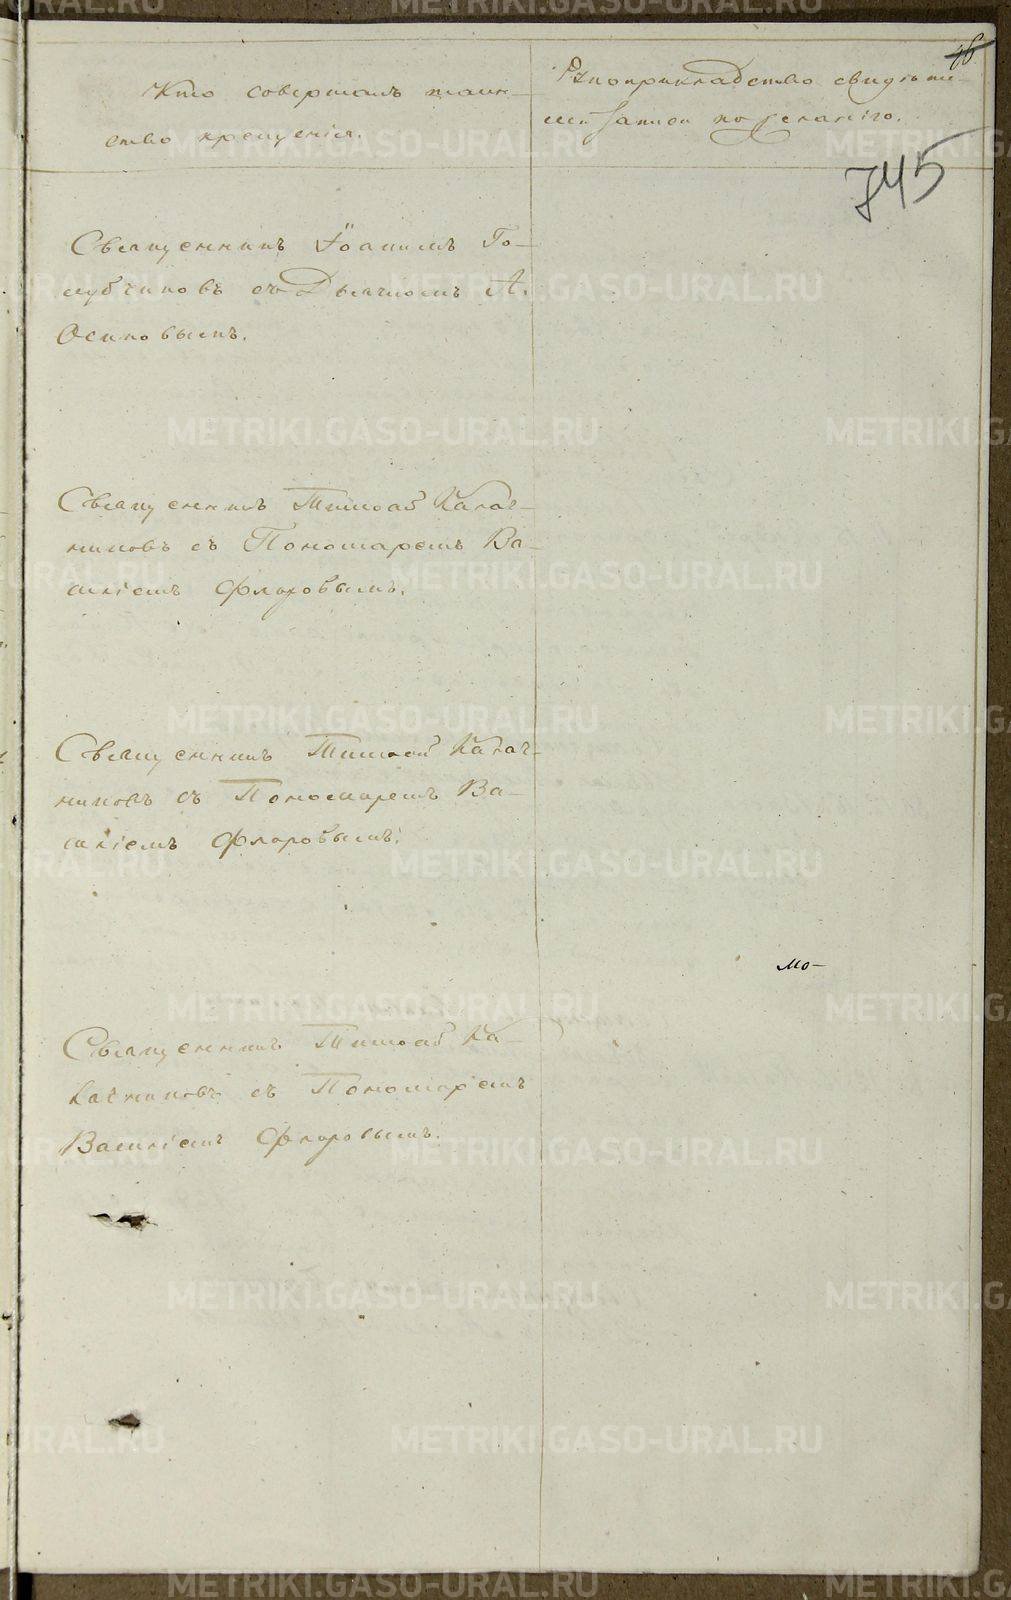 46
Кто совершалъ таин-
ство крещенія.
Рукоприкладство свидѣте-
лей записи по желанію.
745
Священникъ Іоаннъ Го-
лубчиковъ съ Дьячкомъ А.
Осиповымъ.
Священникъ Тимоѳей Калач-
никовъ съ Пономаремъ Ва-
силіемъ Флоровымъ.
Священникъ Тимоѳей Калач-
никовъ съ Пономаремъ Ва-
силіемъ Флоровымъ.
мо-
Священникъ Тимоѳей Ка-
лачниковъ съ Пономаремъ
Василіемъ Флоровымъ.
METRIKI.GASO-URAL.RU